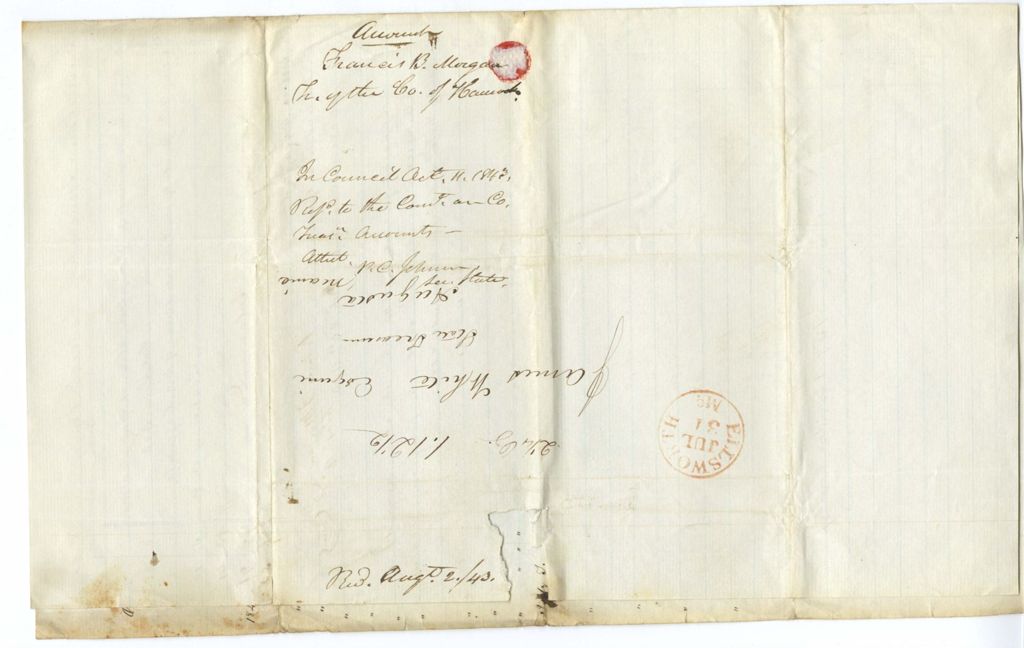 Account
Francis B. Morgan
Tr. of the Co. of Hancock
In Council Oct. 11. 1843.
Refd. to the Comte. on Co.
Treasr. Accounts —
Attest,
P. C. Johnson
Sec. State.
James White Esquire
State Treasurer
Augusta
Maine
1.12½
ELLSWORTH
Me
JUL
31
Recd. Augt. 2./43.